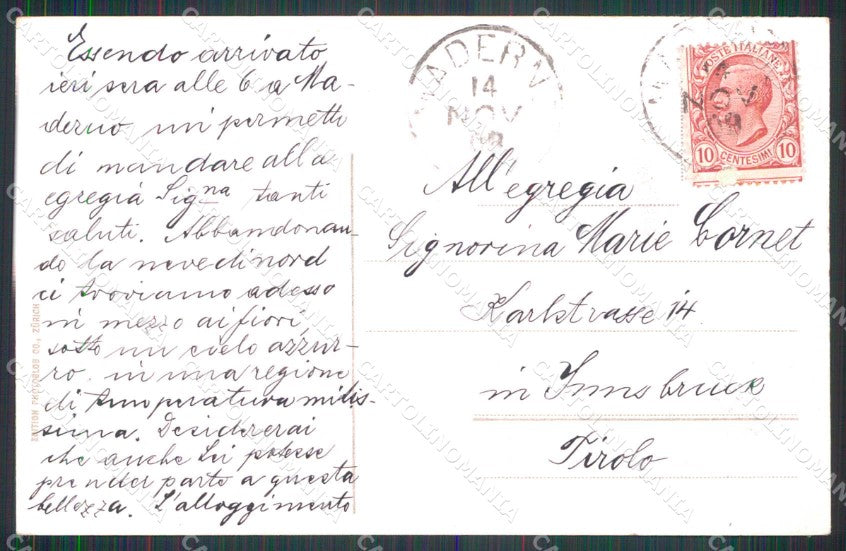 Essendo arrivato
ieri sera alle 6 a Ma-
derno mi permetto
di mandare alla
egregia Sig.na tanti
saluti. Abbandonan-
do la neve di nord
ci troviamo adesso
in mezzo ai fiori,
sotto un cielo azzur-
ro in una regione
di temperatura mitis-
sima. Desidererai
che anche Lei potesse
prender parte a questa
bellezza. L'alloggimento
EDITION PHOTOGLOB CO., ZÜRICH
MADERN
14
NOV
09
POSTE ITALIANE
10 CENTESIMI 10
NOV
All'egregia
Signorina Marie Cornet
Karlstrasse 14
in Innsbruck
Tirolo
CARTOLINOMANIA